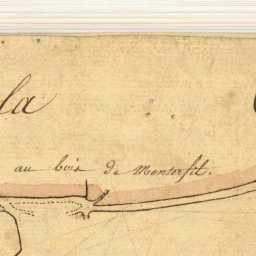 la
au bois de Montresil.